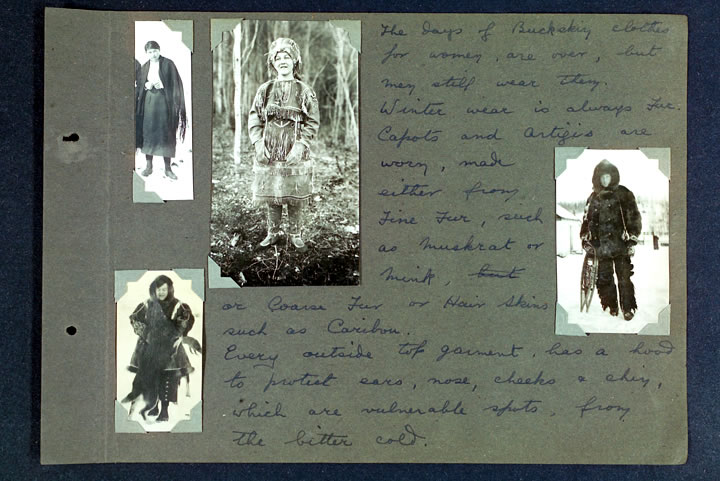 The days of Buckskin clothes
for women, are over, but
men still wear them.
Winter wear is always Fur.
Capots and Artigis are
worn, made
either from
Fine Fur, such
as Muskrat or
Mink, but
or Coarse Fur or Hair Skins
such as Caribou.
Every outside top garment, has a hood
to protect ears, nose, cheeks & chin,
which are vulnerable spots, from
the bitter cold.